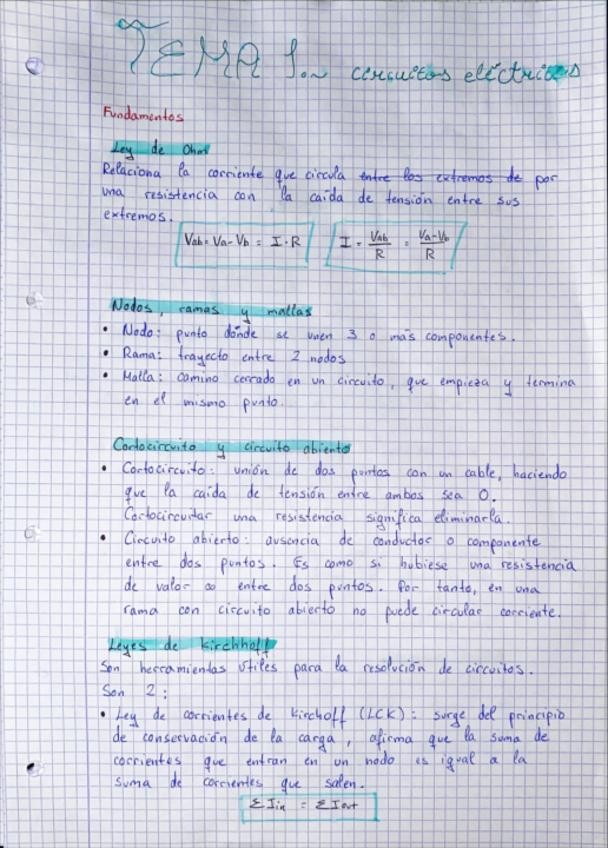 TEMA 1.~ circuitos eléctricos
Fundamentos
Ley de Ohm
Relaciona la corriente que circula entre los extremos de por
una resistencia con la caída de tensión entre sus
extremos.
Vab = Va - Vb = I · R    I = Vab/R = Va-Vb/R
Nodos, ramas y mallas
• Nodo: punto dónde se unen 3 o más componentes.
• Rama: trayecto entre 2 nodos
• Malla: camino cerrado en un circuito, que empieza y termina
en el mismo punto.
Cortocircuito y circuito abierto
• Cortocircuito: unión de dos puntos con un cable, haciendo
que la caída de tensión entre ambos sea 0.
Cortocircuitar una resistencia significa eliminarla.
• Circuito abierto: ausencia de conductor o componente
entre dos puntos. Es como si hubiese una resistencia
de valor ∞ entre dos puntos. Por tanto, en una
rama con circuito abierto no puede circular corriente.
Leyes de Kirchhoff
Son herramientas útiles para la resolución de circuitos.
Son 2:
• Ley de corrientes de Kirchoff (LCK): surge del principio
de conservación de la carga, afirma que la suma de
corrientes que entran en un nodo es igual a la
suma de corrientes que salen.
Σ Iin = Σ Iout